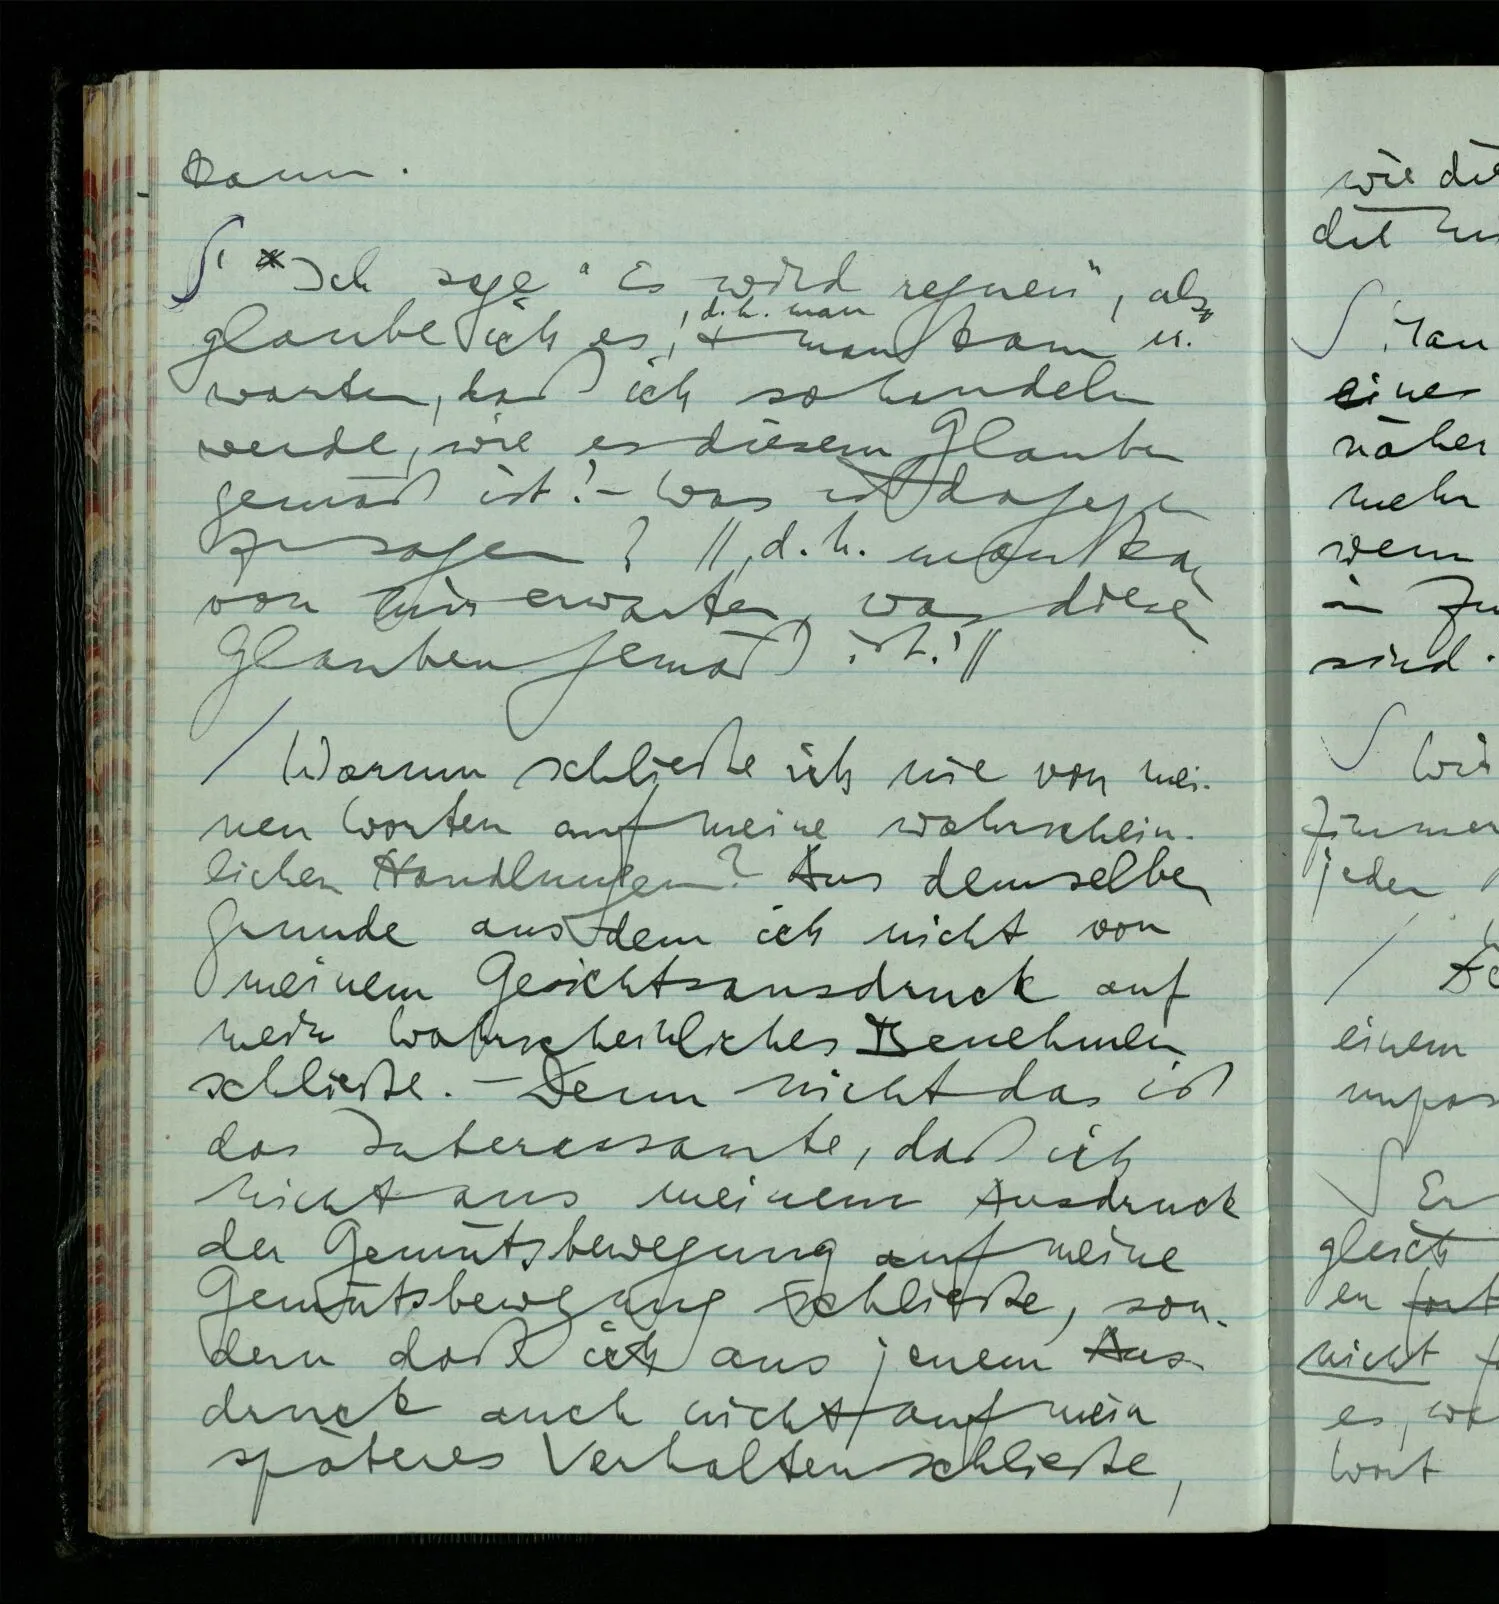 kann.
∫ 'Ich sage "Es wird regnen", also
glaube ich es, d.h. man
& man kann er-
warten, daß ich so handeln
werde, wie es diesem Glauben
gemäß ist!' – Was ist dagegen
zu sagen? //, d.h. man kann
von mir erwarten, was diesem
Glauben gemäß ist.'//
/ Warum schließe ich nie von mei-
nen Worten auf meine wahrschein-
lichen Handlungen? Aus demselben
Grunde aus dem ich nicht von
meinem Gesichtsausdruck auf
mein wahrscheinliches Benehmen
schließe. – Denn nicht das ist
das Interessante, daß ich
nicht aus meinem Ausdruck
der Gemütsbewegung auf meine
Gemütsbewegung schließe, son-
dern daß ich aus jenem Aus-
druck auch nicht auf mein
späteres Verhalten schließe,
wie die
∫
eine
näher
mehr
wenn
in
sind.
∫
Zimmer
jeder
/
einem
∫ Er
gleich
en
nicht
es,
Wort